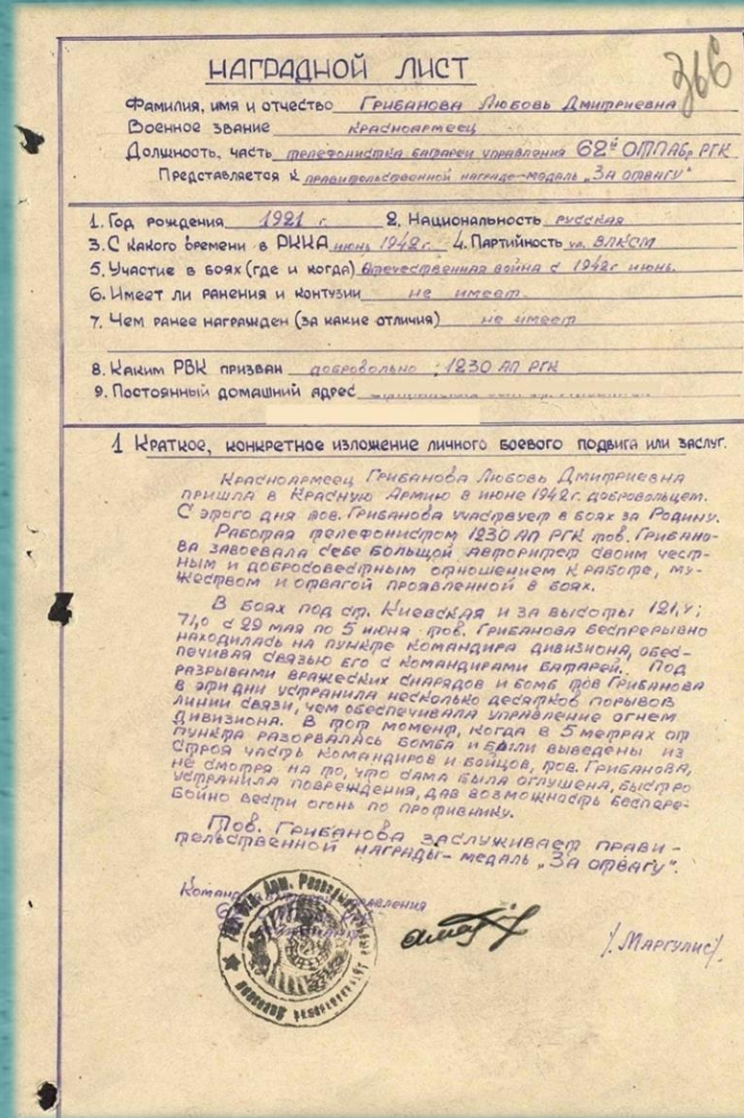 366
НАГРАДНОЙ ЛИСТ
Фамилия, имя и отчество Грибанова Любовь Дмитриевна
Военное звание красноармеец
Должность, часть телефонистка батареи управления 62й ОТПАБр РГК
Представляется к правительственной награде-медаль „За отвагу"
1. Год рождения 1921 г. 2. Национальность русская
3. С какого времени в РККА июнь 1942г. 4. Партийность чл. ВЛКСМ
5. Участие в боях (где и когда) Отечественная война с 1942г июнь.
6. Имеет ли ранения и контузии не имеет.
7. Чем ранее награжден (за какие отличия) не имеет
8. Каким РВК призван добровольно ; 1230 АП РГК
9. Постоянный домашний адрес
1 Краткое, конкретное изложение личного боевого подвига или заслуг.
Красноармеец Грибанова Любовь Дмитриевна
пришла в Красную Армию в июне 1942г. добровольцем.
С этого дня тов. Грибанова участвует в боях за Родину.
Работая телефонистом 1230 АП РГК тов. Грибано-
ва завоевала себе большой авторитет своим чест-
ным и добросовестным отношением к работе, му-
жеством и отвагой проявленной в боях.
В боях под ст. Киевская и за высоты 121,4;
71,0 с 29 мая по 5 июня тов. Грибанова беспрерывно
находилась на пункте командира дивизиона, обес-
печивая связью его с командирами батарей. Под
разрывами вражеских снарядов и бомб тов Грибанова
в эти дни устранила несколько десятков порывов
линии связи, чем обеспечивала управление огнем
дивизиона. В тот момент, когда в 5 метрах от
пункта разорвалась бомба и были выведены из
строя часть командиров и бойцов, тов. Грибанова,
не смотря на то, что сама была оглушена, быстро
устранила повреждения, дав возможность беспере-
бойно вести огонь по противнику.
Тов. Грибанова заслуживает прави-
тельственной награды- медаль „За отвагу".
управления
/. Маргулис/.